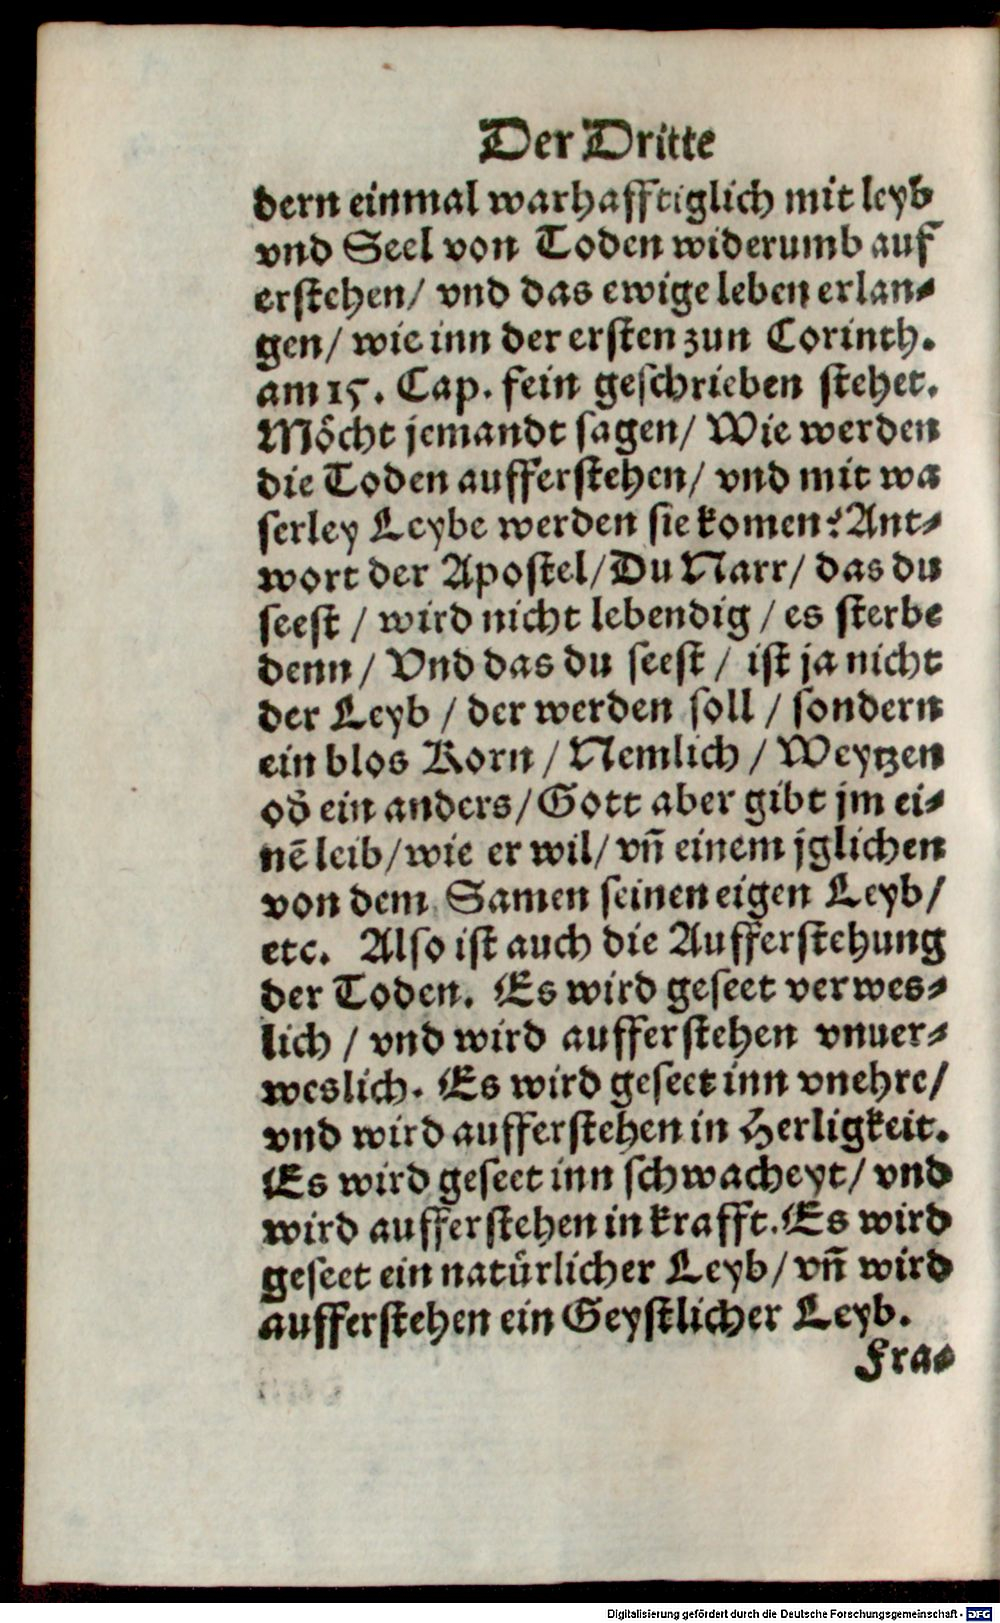 Der Dritte
dern einmal warhafftiglich mit leyb
vnd Seel von Toden widerumb auf
erstehen/ vnd das ewige leben erlan-
gen/ wie inn der ersten zun Corinth.
am 15. Cap. fein geschrieben stehet.
Möcht jemandt sagen/ Wie werden
die Toden aufferstehen/ vnd mit wa
serley Leybe werden sie komen? Ant-
wort der Apostel/ Du Narr/ das du
seest / wird nicht lebendig / es sterbe
denn/ Vnd das du seest / ist ja nicht
der Leyb / der werden soll / sondern
ein blos Korn / Nemlich / Weytzen
od̃ ein anders/ Gott aber gibt jm ei-
nẽ leib/ wie er wil/ vñ einem jglichen
von dem Samen seinen eigen Leyb/
etc. Also ist auch die Aufferstehung
der Toden. Es wird geseet verwes-
lich / vnd wird aufferstehen vnuer-
weslich. Es wird geseet inn vnehre/
vnd wird aufferstehen in Herligkeit.
Es wird geseet inn schwacheyt/ vnd
wird aufferstehen in krafft. Es wird
geseet ein natürlicher Leyb/ vñ wird
aufferstehen ein Geystlicher Leyb.
Fra-
Digitalisierung gefördert durch die Deutsche Forschungsgemeinschaft - DFG